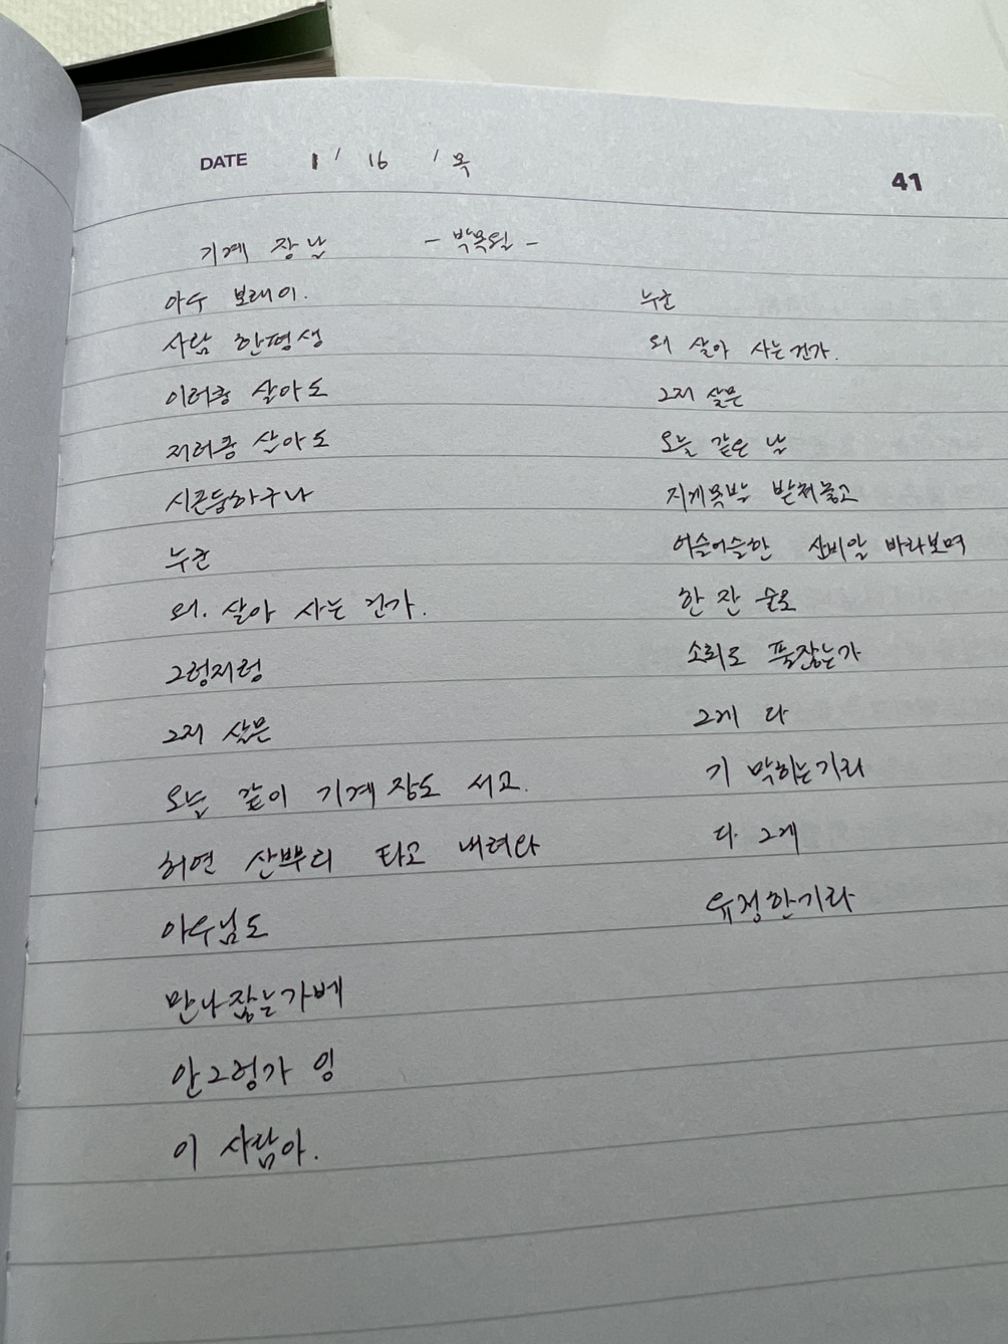 DATE 1 / 16 / 목
41
기계 장날 - 박목월 -
아우 보래이.
사람 한평생
이러쿵 살아도
저러쿵 살아도
시큰둥하구나
누군
왜. 살아 사는 건가.
그렁저렁
그저 살믄
오늘 같이 기계 장도 서고.
허연 산뿌리 타고 내려와
아우님도
만나잖는가베
안그렁가 잉
이 사람아.
누군
왜 살아 사는건가.
그저 살믄
오늘 같은 날
지게목발 받쳐놓고
어슬어슬한 산비알 바라보며
한 잔 술로
소회도 풀잖는가
그게 다
기 막히는기라
다 그게
유정한기라